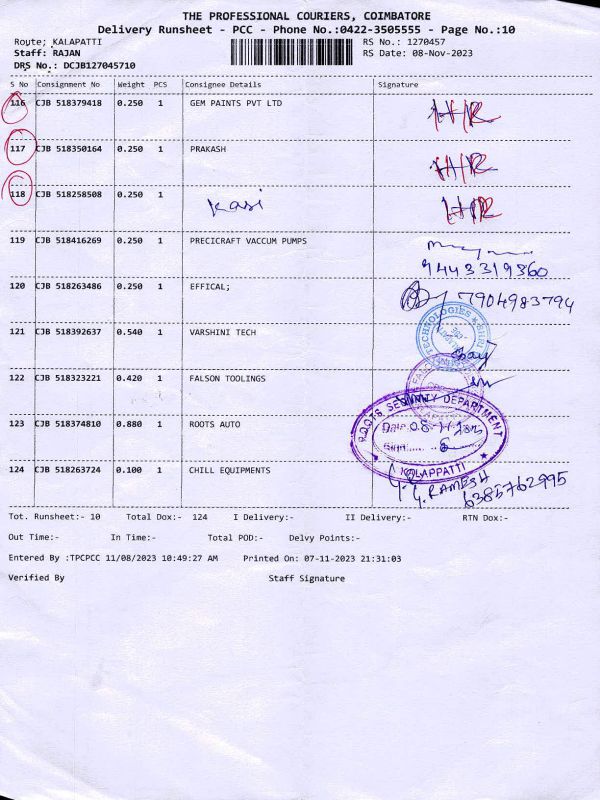 THE PROFESSIONAL COURIERS, COIMBATORE
Delivery Runsheet - PCC - Phone No.:0422-3505555 - Page No.:10
Route; KALAPATTI RS No.: 1270457
Staff: RAJAN RS Date: 08-Nov-2023
DRS No.: DCJB127045710
S No Consignment No Weight PCS Consignee Details Signature
116 CJB 518379418 0.250 1 GEM PAINTS PVT LTD
117 CJB 518350164 0.250 1 PRAKASH
118 CJB 518258508 0.250 1 Kasi
119 CJB 518416269 0.250 1 PRECICRAFT VACCUM PUMPS
9443319860
120 CJB 518263486 0.250 1 EFFICAL; 7904983794
121 CJB 518392637 0.540 1 VARSHINI TECH
TECHNOLOGIES SHRI
122 CJB 518323221 0.420 1 FALSON TOOLINGS
123 CJB 518374810 0.880 1 ROOTS AUTO
ROOTS SECURITY DEPARTMENT
Date 08
Sign
KALAPPATTI
124 CJB 518263724 0.100 1 CHILL EQUIPMENTS
G. RAMESH
6385762995
Tot. Runsheet:- 10 Total Dox:- 124 I Delivery:- II Delivery:- RTN Dox:-
Out Time:- In Time:- Total POD:- Delvy Points:-
Entered By :TPCPCC 11/08/2023 10:49:27 AM Printed On: 07-11-2023 21:31:03
Verified By Staff Signature